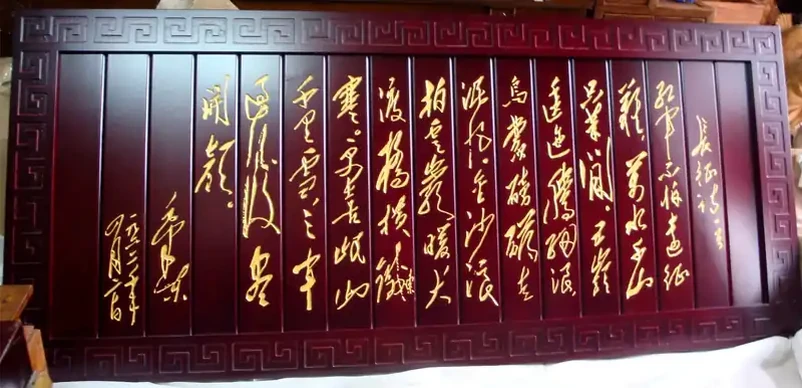 長征詩一首
紅軍不怕遠征
難。萬水千山
只等閑。五嶺
逶迤騰細浪
烏蒙磅礴走
泥丸。金沙浪
拍雲巖暖大
渡橋橫鐵索
寒。更喜岷山
千里雪。三軍
過後盡
開顏。
毛澤東
一九六二年
四月廿日